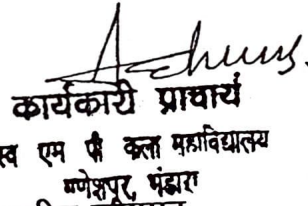 कार्यकारी प्राचार्य
स्व एम पी कला महाविद्यालय
गणेशपुर, भंडारा